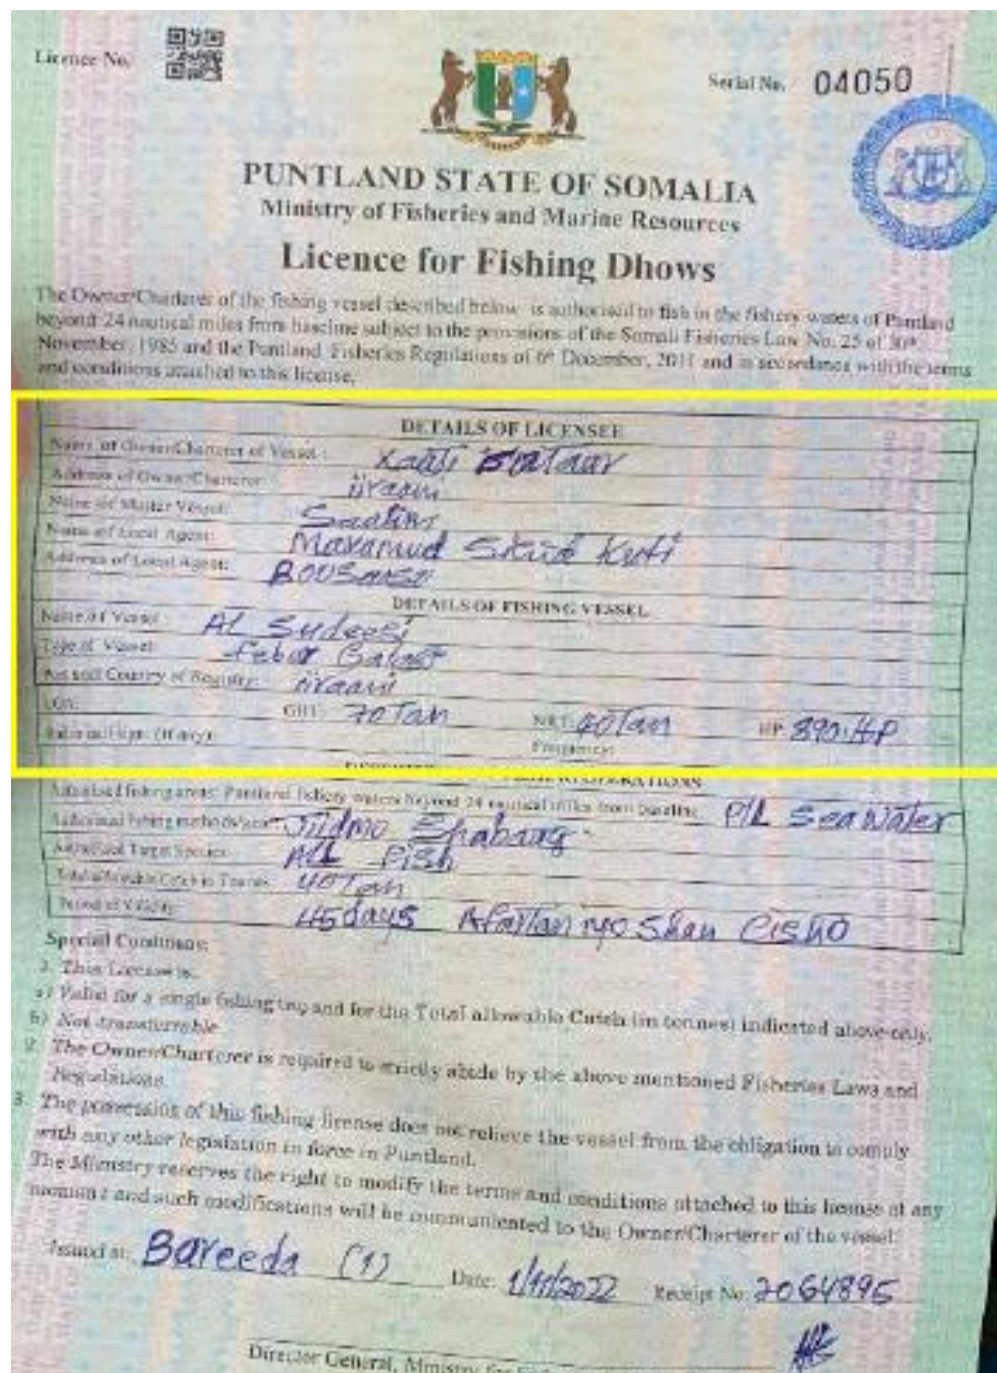 Licence No.
Serial No. 04050
PUNTLAND STATE OF SOMALIA
Ministry of Fisheries and Marine Resources
Licence for Fishing Dhows
The Owner/Charterer of the fishing vessel described below is authorised to fish in the fishery waters of Puntland
beyond 24 nautical miles from baseline subject to the provisions of the Somali Fisheries Law No. 25 of 30th
November, 1985 and the Puntland Fisheries Regulations of 6th December, 2011 and in accordance with the terms
and conditions attached to this license.
DETAILS OF LICENSEE
Name of Owner/Charterer of Vessel: Xaaji
Address of Owner/Charterer: iiraani
Name of Master Vessel:
Name of Local Agent: Maxamud
Address of Local Agent:
DETAILS OF FISHING VESSEL
Name of Vessel: AL Sudeesi
Type of Vessel:
and Country of Registry: iiraani
GRT: 70 Tan NRT: 40 Tan HP: 890.HP
Frequency:
FISHERY OPERATIONS
Authorised fishing areas: Puntland fishery waters beyond 24 nautical miles from baseline P/L Sea Water
Authorised fishing methods/gear: Jiidmo Shabaag
Authorised Target Species: ALL Fish
Total allowable Catch in Tonnes: 40 Tan
Period of Validity: 45 days Afartan iyo Shan Cisho
Special Conditions:
1. This License is:
a) Valid for a single fishing trip and for the Total allowable Catch (in tonnes) indicated above only.
b) Not transferrable
2. The Owner/Charterer is required to strictly abide by the above mentioned Fisheries Laws and
Regulations.
3. The possession of this fishing license does not relieve the vessel from the obligation to comply
with any other legislation in force in Puntland.
The Ministry reserves the right to modify the terms and conditions attached to this license at any
moment and such modifications will be communicated to the Owner/Charterer of the vessel.
Issued at: Bareeda (1) Date: 1/11/2022 Receipt No: 2064895
Director General, Ministry for